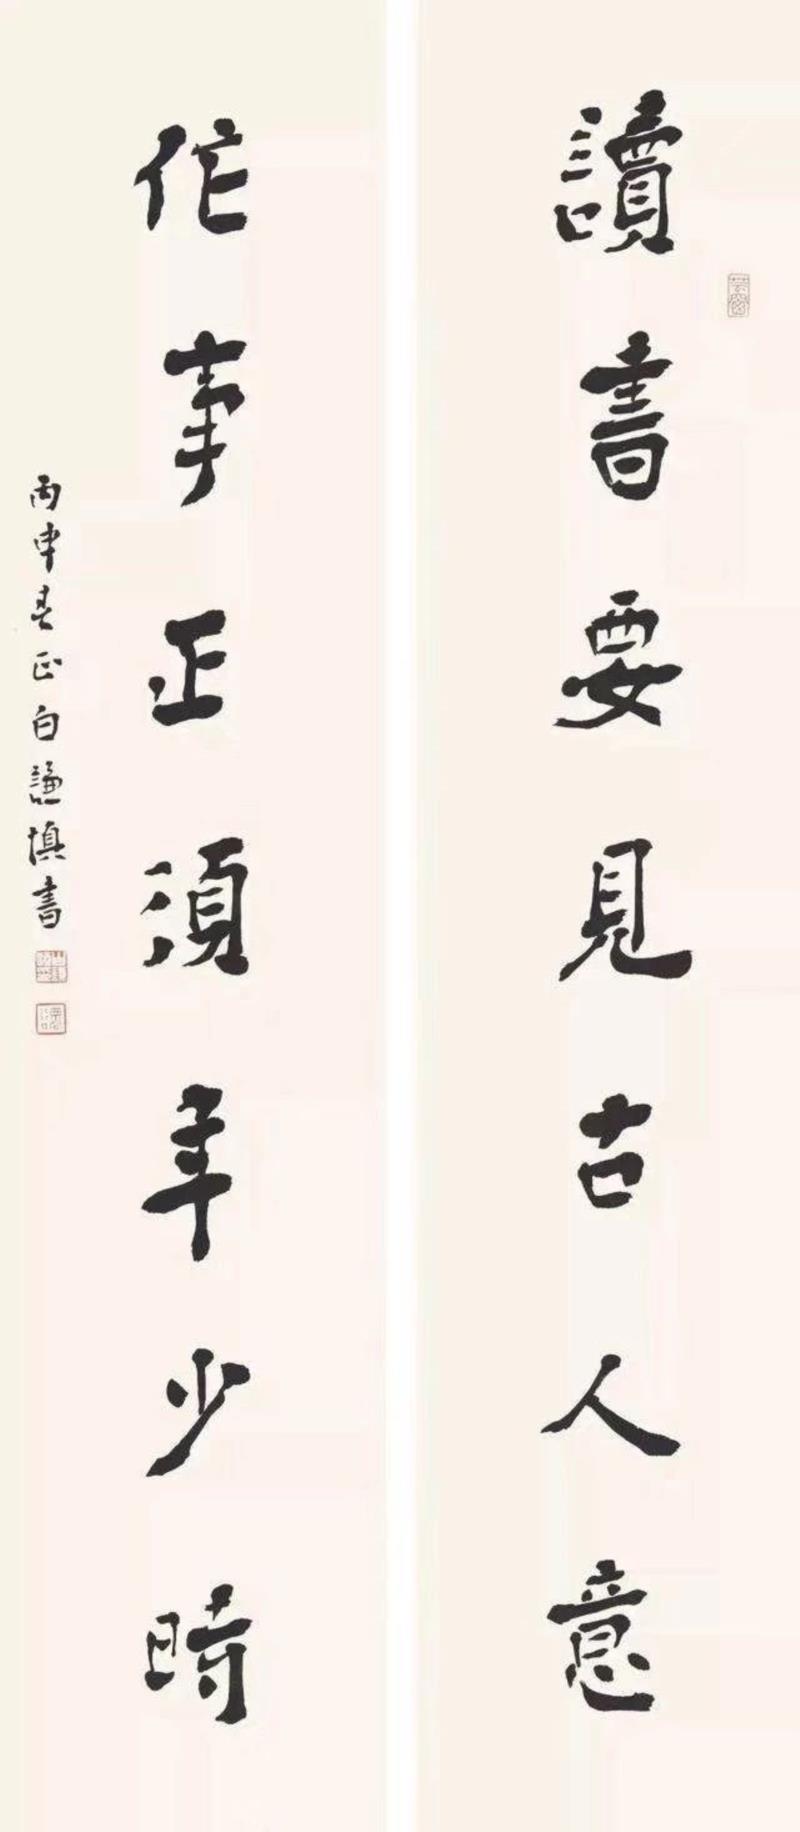 讀書要見古人意
作事正須年少時
丙申春正白謙慎書